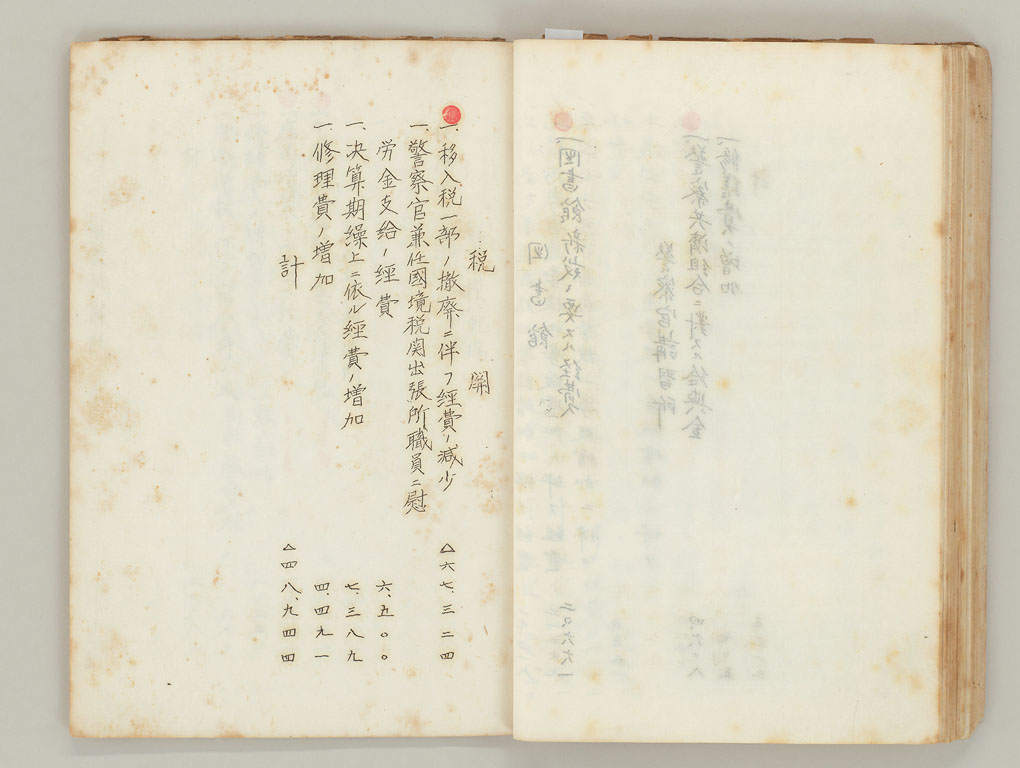 税関
一、移入税一部ノ撤廃ニ伴フ経費ノ減少 △六七、三二四
一、警察官兼任國境税関出張所職員ニ慰
労金支給ノ経費 六、五〇〇
一、決算期繰上ニ依ル経費ノ増加 七、三八九
一、修理費ノ増加 四、四九一
計 △四八、九四四